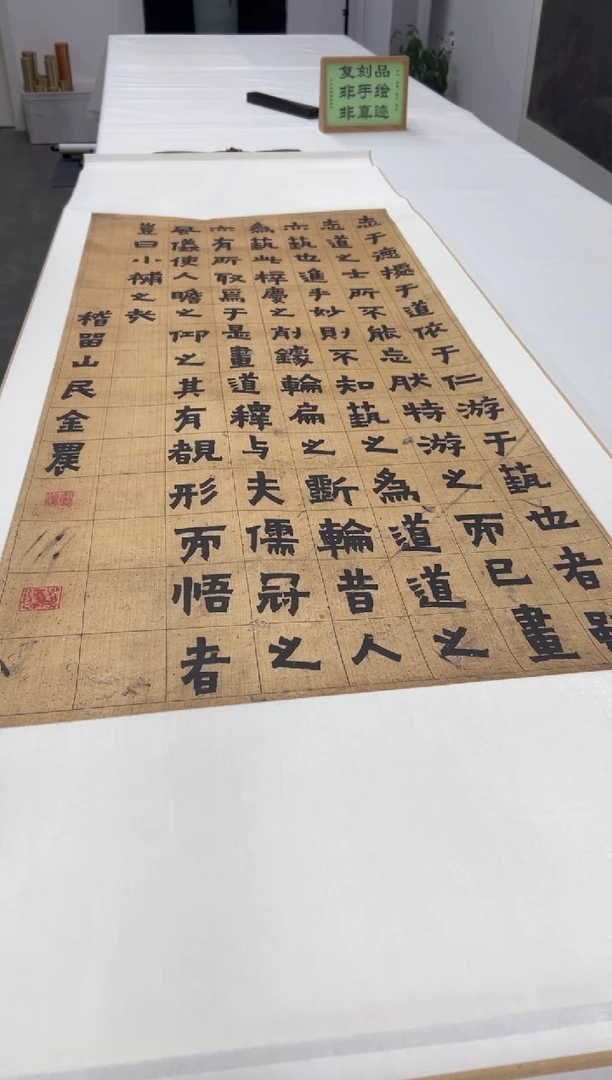 复刻品
非手绘
非真迹
志于德擾于道依于仁游于藝也者
志道之士所不能忘肰特游之而已畫
亦藝也進乎妙則不知藝之為道道之
為藝此梓慶之削鐻輪扁之斲輪昔人
亦有所取焉于是畫道釋与夫儒冠之
風儀使人瞻之仰之其有覩形而悟者
豈曰小補之哉
稽留山民金農